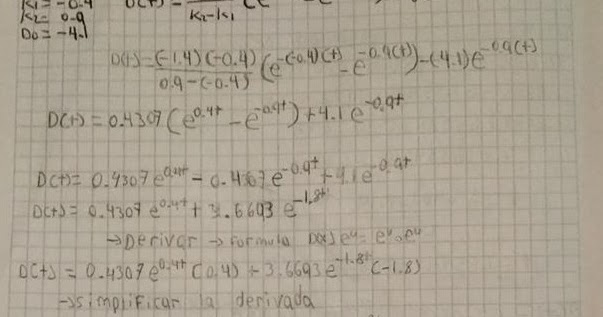 K1= -0.4
K2= 0.9 D(t)= K2-K1
D0= -4.1
D(t)= (-1.4)(-0.4) / 0.9-(-0.4) (e^-(-0.4)(t) - e^-0.9(t)) -(4.1)e^-0.9(t)
D(t)= 0.4307(e^0.4t - e^-0.9t) + 4.1e^-0.9t
D(t)= 0.4307 e^0.4t - 0.4307 e^-0.9t + 4.1e^-0.9t
D(t)= 0.4307 e^0.4t + 3.6693 e^-1.8t
→Derivar → formula
D(t)= 0.4307e^0.4t (0.4) + 3.6693e^-1.8t (-1.8)
→simplificar la derivada